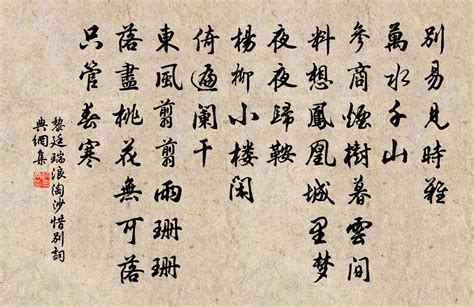 別易見時難
萬水千山
參商煙樹暮雲間
料想鳳凰城里梦
夜夜歸鞍
楊柳小楼闲
倚遍阑干
東風翦翦雨珊珊
落盡桃花無可落
只管春寒
黎廷瑞浪淘沙惜别詞
典網集